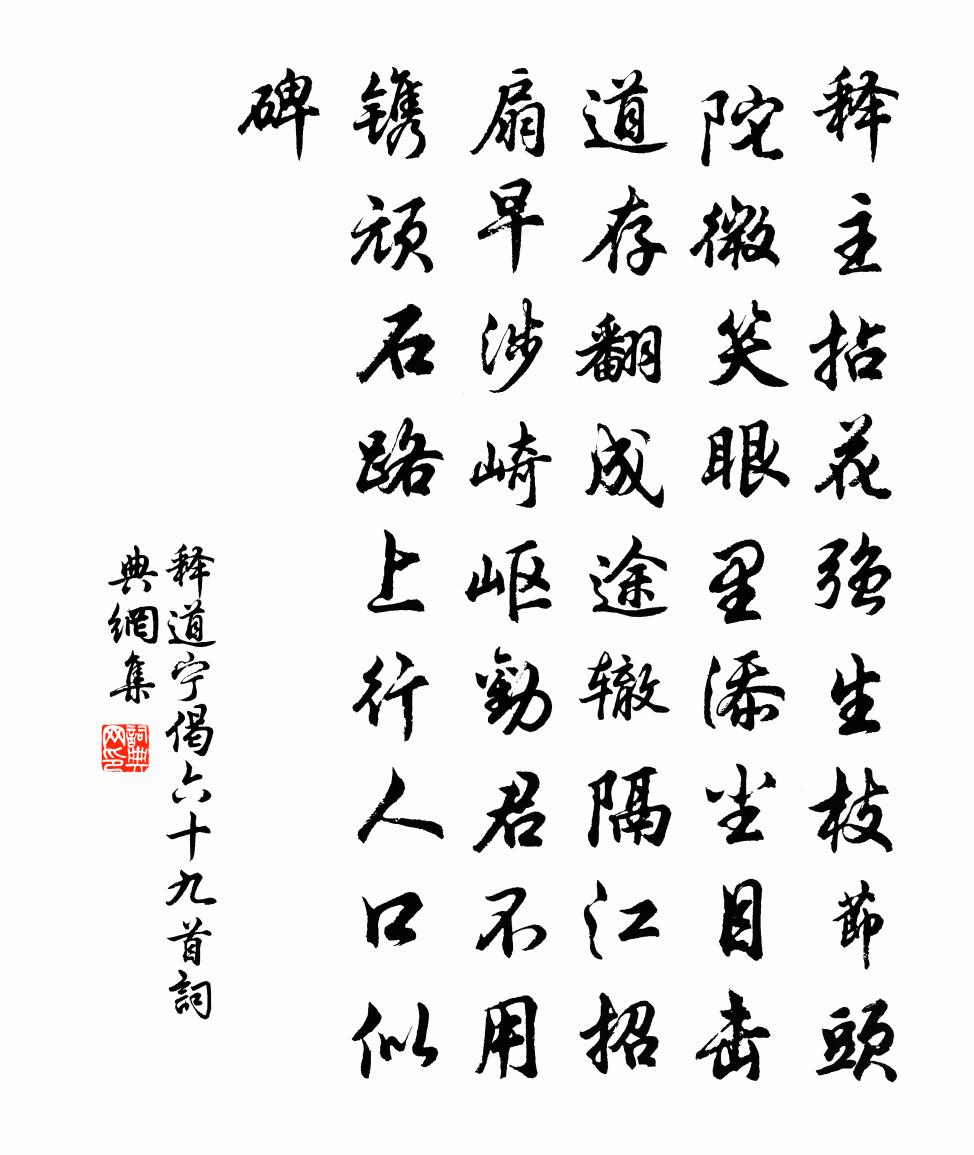 释主拈花强生枝節頭
陀微笑眼里添尘目击
道存翻成途辙隔江招
扇早涉崎岖勸君不用
镌顽石路上行人口似
碑
释道宁偈六十九首詞
典網集
詞典网印